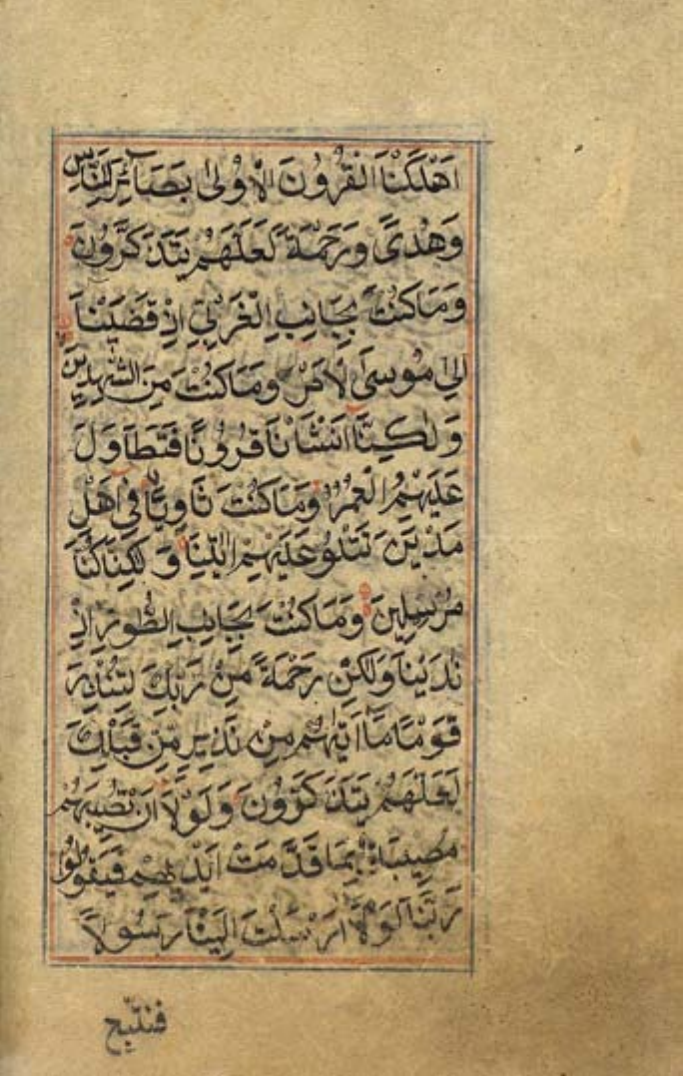 اَهْلَكْنَا الْقُرُوْنَ الْاُوْلٰى بَصَآئِرَ لِلنَّاسِ
وَهُدًى وَرَحْمَةً لَعَلَّهُمْ يَتَذَكَّرُوْنَ
وَمَا كُنْتَ بِجَانِبِ الْغَرْبِيِّ اِذْ قَضَيْنَآ
اِلٰى مُوْسَى الْاَمْرَ وَمَا كُنْتَ مِنَ الشّٰهِدِيْنَ
وَلٰكِنَّآ اَنْشَأْنَا قُرُوْنًا فَتَطَاوَلَ
عَلَيْهِمُ الْعُمُرُ وَمَا كُنْتَ ثَاوِيًا فِيْٓ اَهْلِ
مَدْيَنَ تَتْلُوْ عَلَيْهِمْ اٰيٰتِنَا وَلٰكِنَّا كُنَّا
مُرْسِلِيْنَ وَمَا كُنْتَ بِجَانِبِ الطُّوْرِ اِذْ
نَدَيْنَا وَلٰكِنْ رَحْمَةً مِنْ رَبِّكَ لِتُنْذِرَ
قَوْمًا مَآ اَتٰىهُمْ مِنْ نَذِيْرٍ مِّنْ قَبْلِكَ
لَعَلَّهُمْ يَتَذَكَّرُوْنَ وَلَوْلَآ اَنْ تُصِيْبَهُمْ
مُصِيْبَةٌ بِمَا قَدَّمَتْ اَيْدِيْهِمْ فَيَقُوْلُوْا
رَبَّنَا لَوْلَآ اَرْسَلْتَ اِلَيْنَا رَسُوْلًا
فنتبع